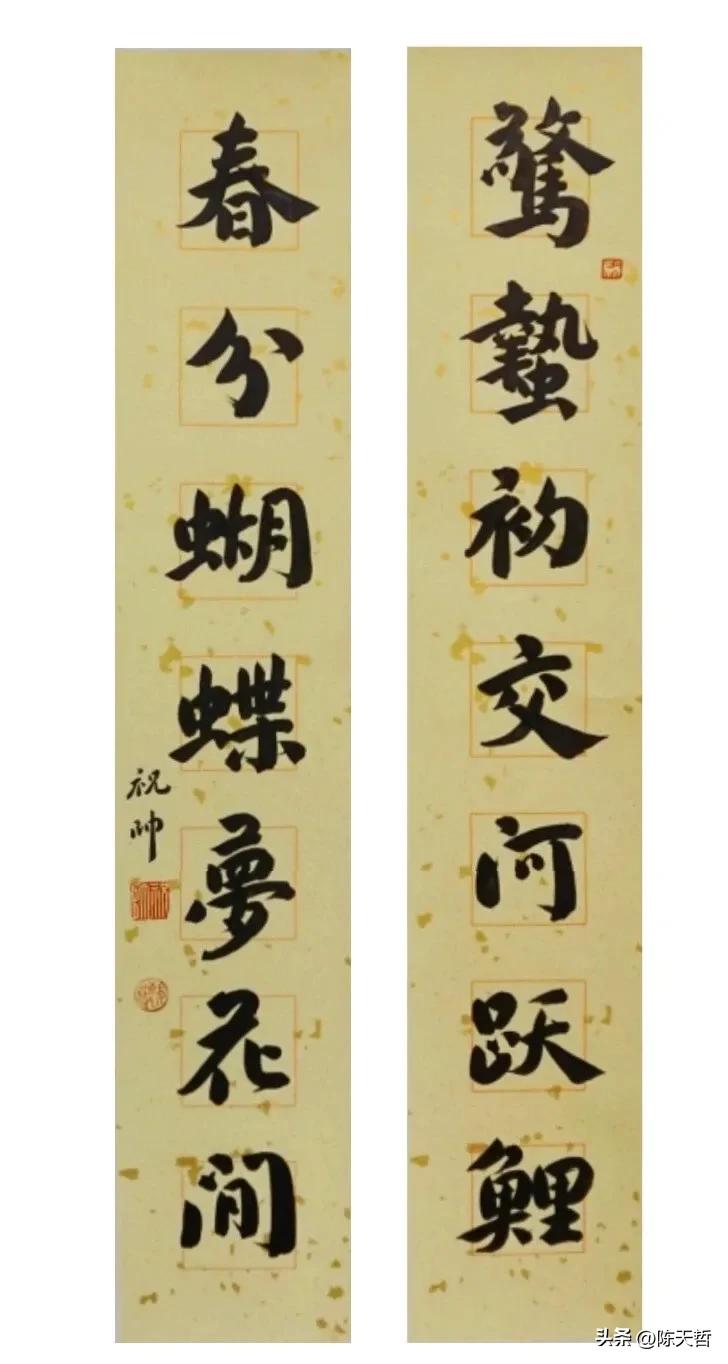 驚蟄初交河跃鲤
春分蝴蝶夢花間
祝帅
头条 @陈天哲